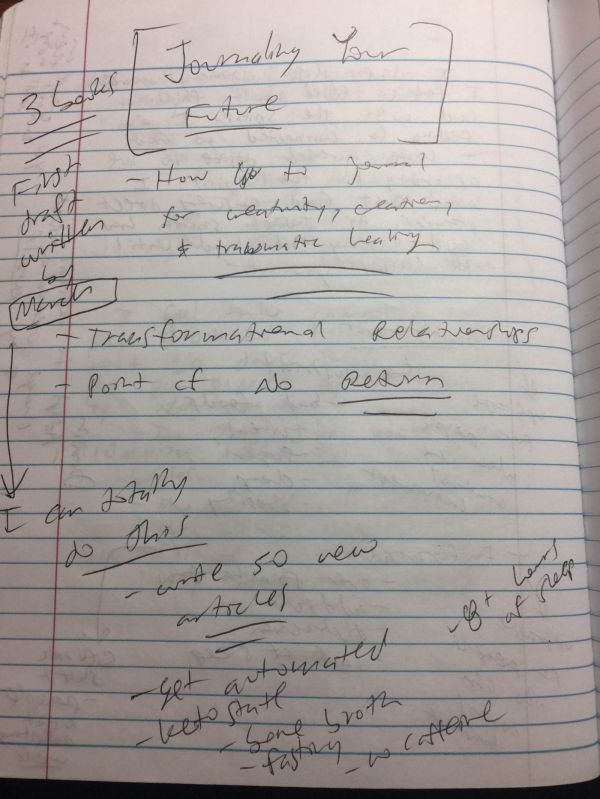 3 books
[Journaling Your
Future]
First
draft
written
by
March
- How to journal
for creativity, creation,
& traumatic healing
- Transformational Relationships
- Point of No Return
I can totally
do this
- write 50 new
articles
- 8+ hours
of sleep
- get automated
- keto state
- bone broth
- fasting - no caffeine